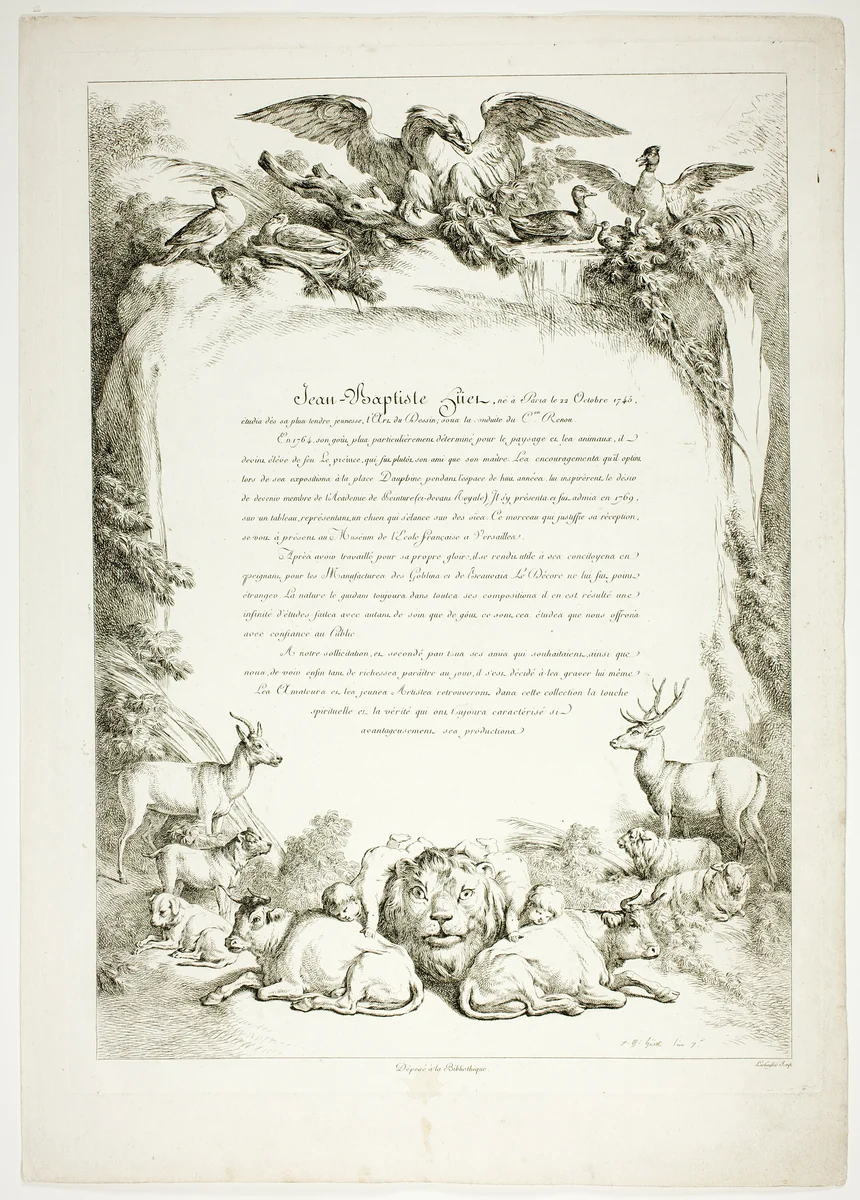 Jean-Baptiste Hüet, né à Paris le 22 Octobre 1745,
étudia dès sa plus tendre jeunesse, l'Art du Dessin, sous la conduite du C.en Renou.
En 1764, son goût plus particulièrement déterminé pour le paysage et les animaux, il
devint élève de feu Le prince, qui fut plutôt son ami que son maître. Les encouragements qu'il optint
lors de ses expositions à la place Dauphine pendant l'espace de huit années lui inspirèrent le désir
de devenir membre de l'Academie de Peinture (ci-devant Royale) Il s'y présenta et fut admis en 1769,
sur un tableau, représentant un chien qui s'élance sur des oies. Ce morceau qui justifie sa réception,
se voit à présent au Muséum de l'Ecole française a Versailles.
Après avoir travaillé pour sa propre gloire, il se rendit utile à ses concitoyens en
enseignant pour les Manufactures des Goblins et de Beauvais Le Décore ne lui fut point
étranger. La nature le guidant toujours dans toutes ses compositions il en est résulté une
infinité d'études faites avec autant de soin que de goût ce sont ces études que nous offrons
avec confiance au Public
A notre sollicitation, et secondé par tous ses amis qui souhaitaient, ainsi que
nous, de voir enfin tant de richesses paraître au jour, il s'est décidé à les graver lui même
Les Amateurs et les jeunes Artistes retrouveront dans cette collection la touche
spirituelle et la vérité qui ont toujours caractérisé si
avantageusement ses productions
Déposé à la Bibliotheque